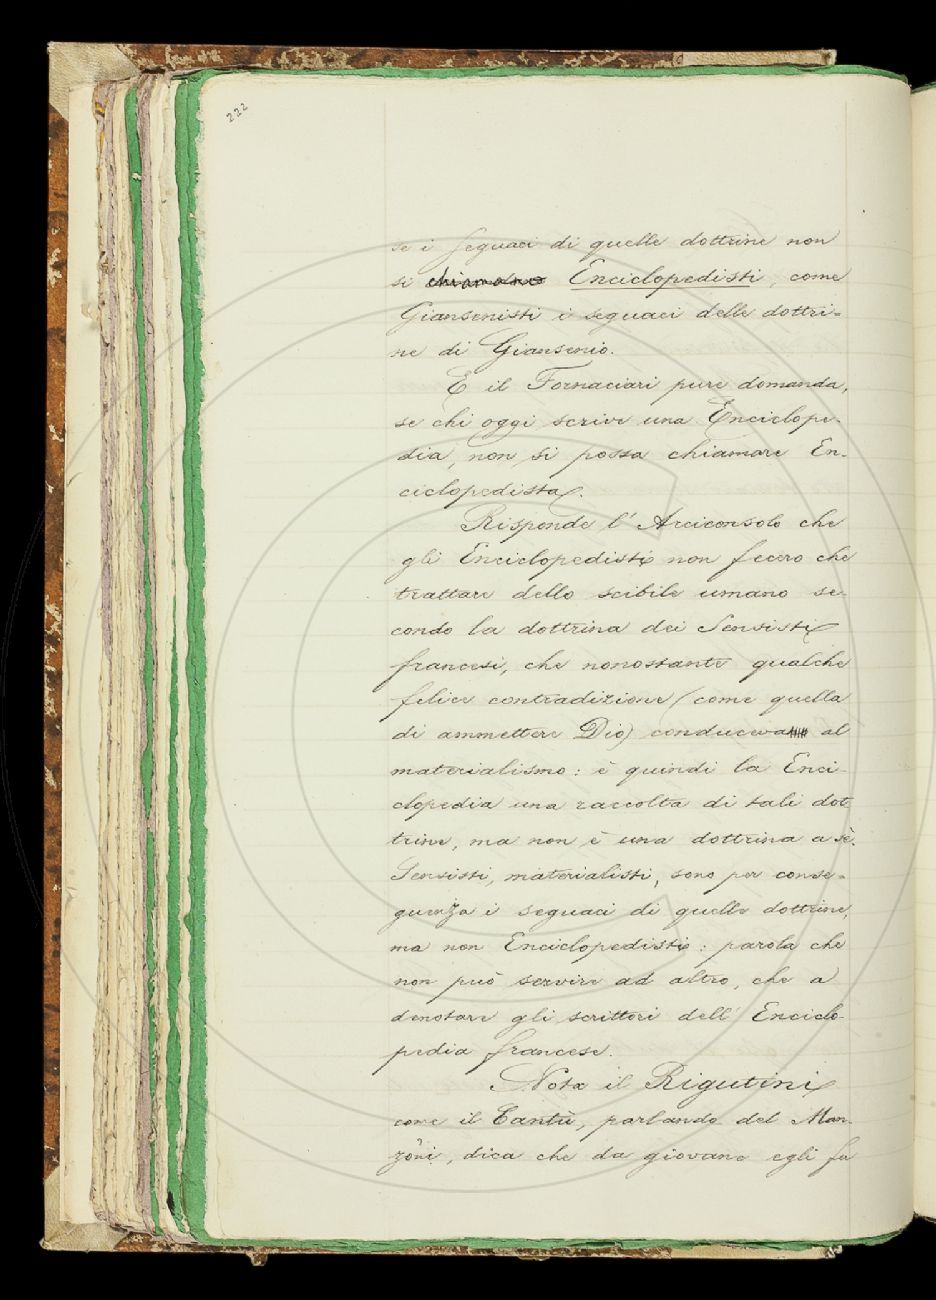 222
se i seguaci di quelle dottrine non
si chiamano Enciclopedisti, come
Giansenisti i seguaci delle dottri-
ne di Giansenio.
E il Fornaciari pure domanda,
se chi oggi scrive una Enciclope-
dia, non si possa chiamare En-
ciclopedista.
Risponde l'Arciconsolo che
gli Enciclopedisti non fecero che
trattare dello scibile umano se-
condo la dottrina dei Sensisti
francesi, che nonostante qualche
felice contradizione (come quella
di ammettere Dio) conduceva al
materialismo: è quindi la Enci-
clopedia una raccolta di tali dot
trine, ma non è una dottrina a sè.
Sensisti, materialisti, sono per conse-
guenza i seguaci di quelle dottrine,
ma non Enciclopedisti: parola che
non può servire ad altro, che a
denotare gli scrittori dell'Enciclo-
pedia francese.
Nota il Rigutini
come il Cantù, parlando del Man-
zoni, dica che da giovane egli fu